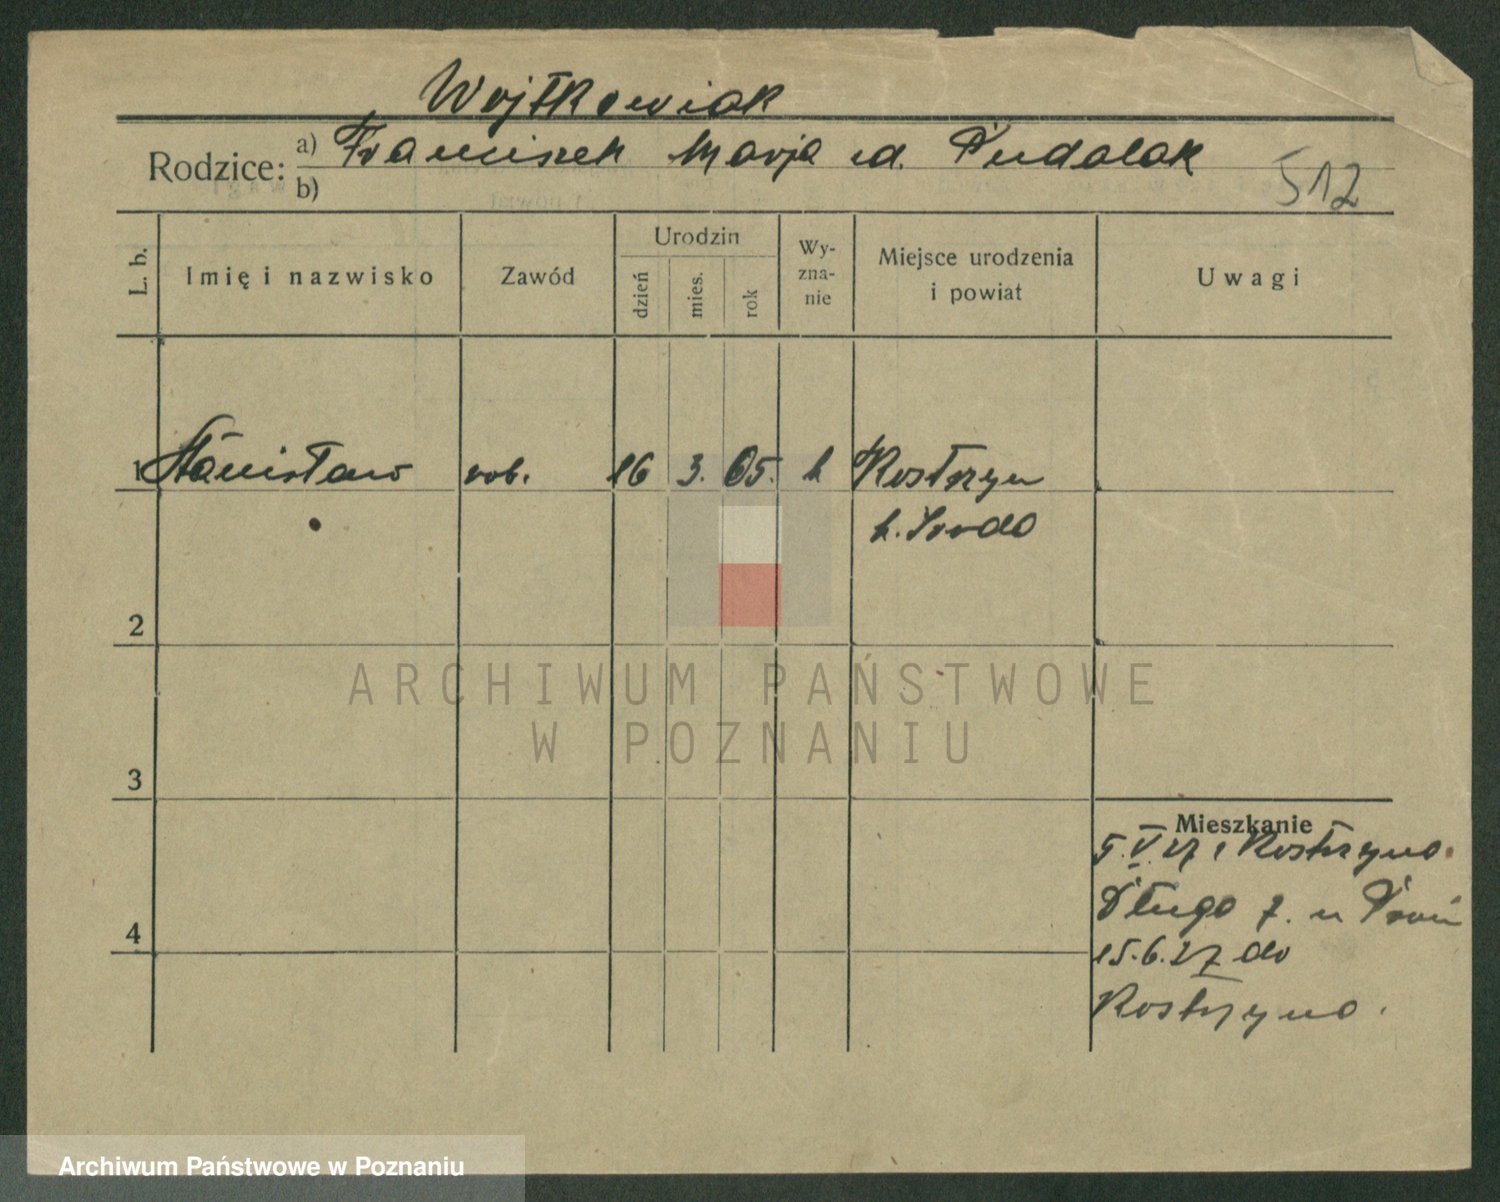 Wojtkowiak
Rodzice: a) Franciszek Marja zd.
b)
512
L. b.
Imię i nazwisko
Zawód
Urodzin
dzień
mies.
rok
Wy-
zna-
nie
Miejsce urodzenia
i powiat
Uwagi
1 Stanisław rob. 16 3. 05. k Kostrzyn
p. Środa
2
3
4
Mieszkanie
5.V.27 z Kostrzyna.
Długa 7. u
15.6.27 do
Kostrzyna.
ARCHIWUM PAŃSTWOWE
W POZNANIU
Archiwum Państwowe w Poznaniu